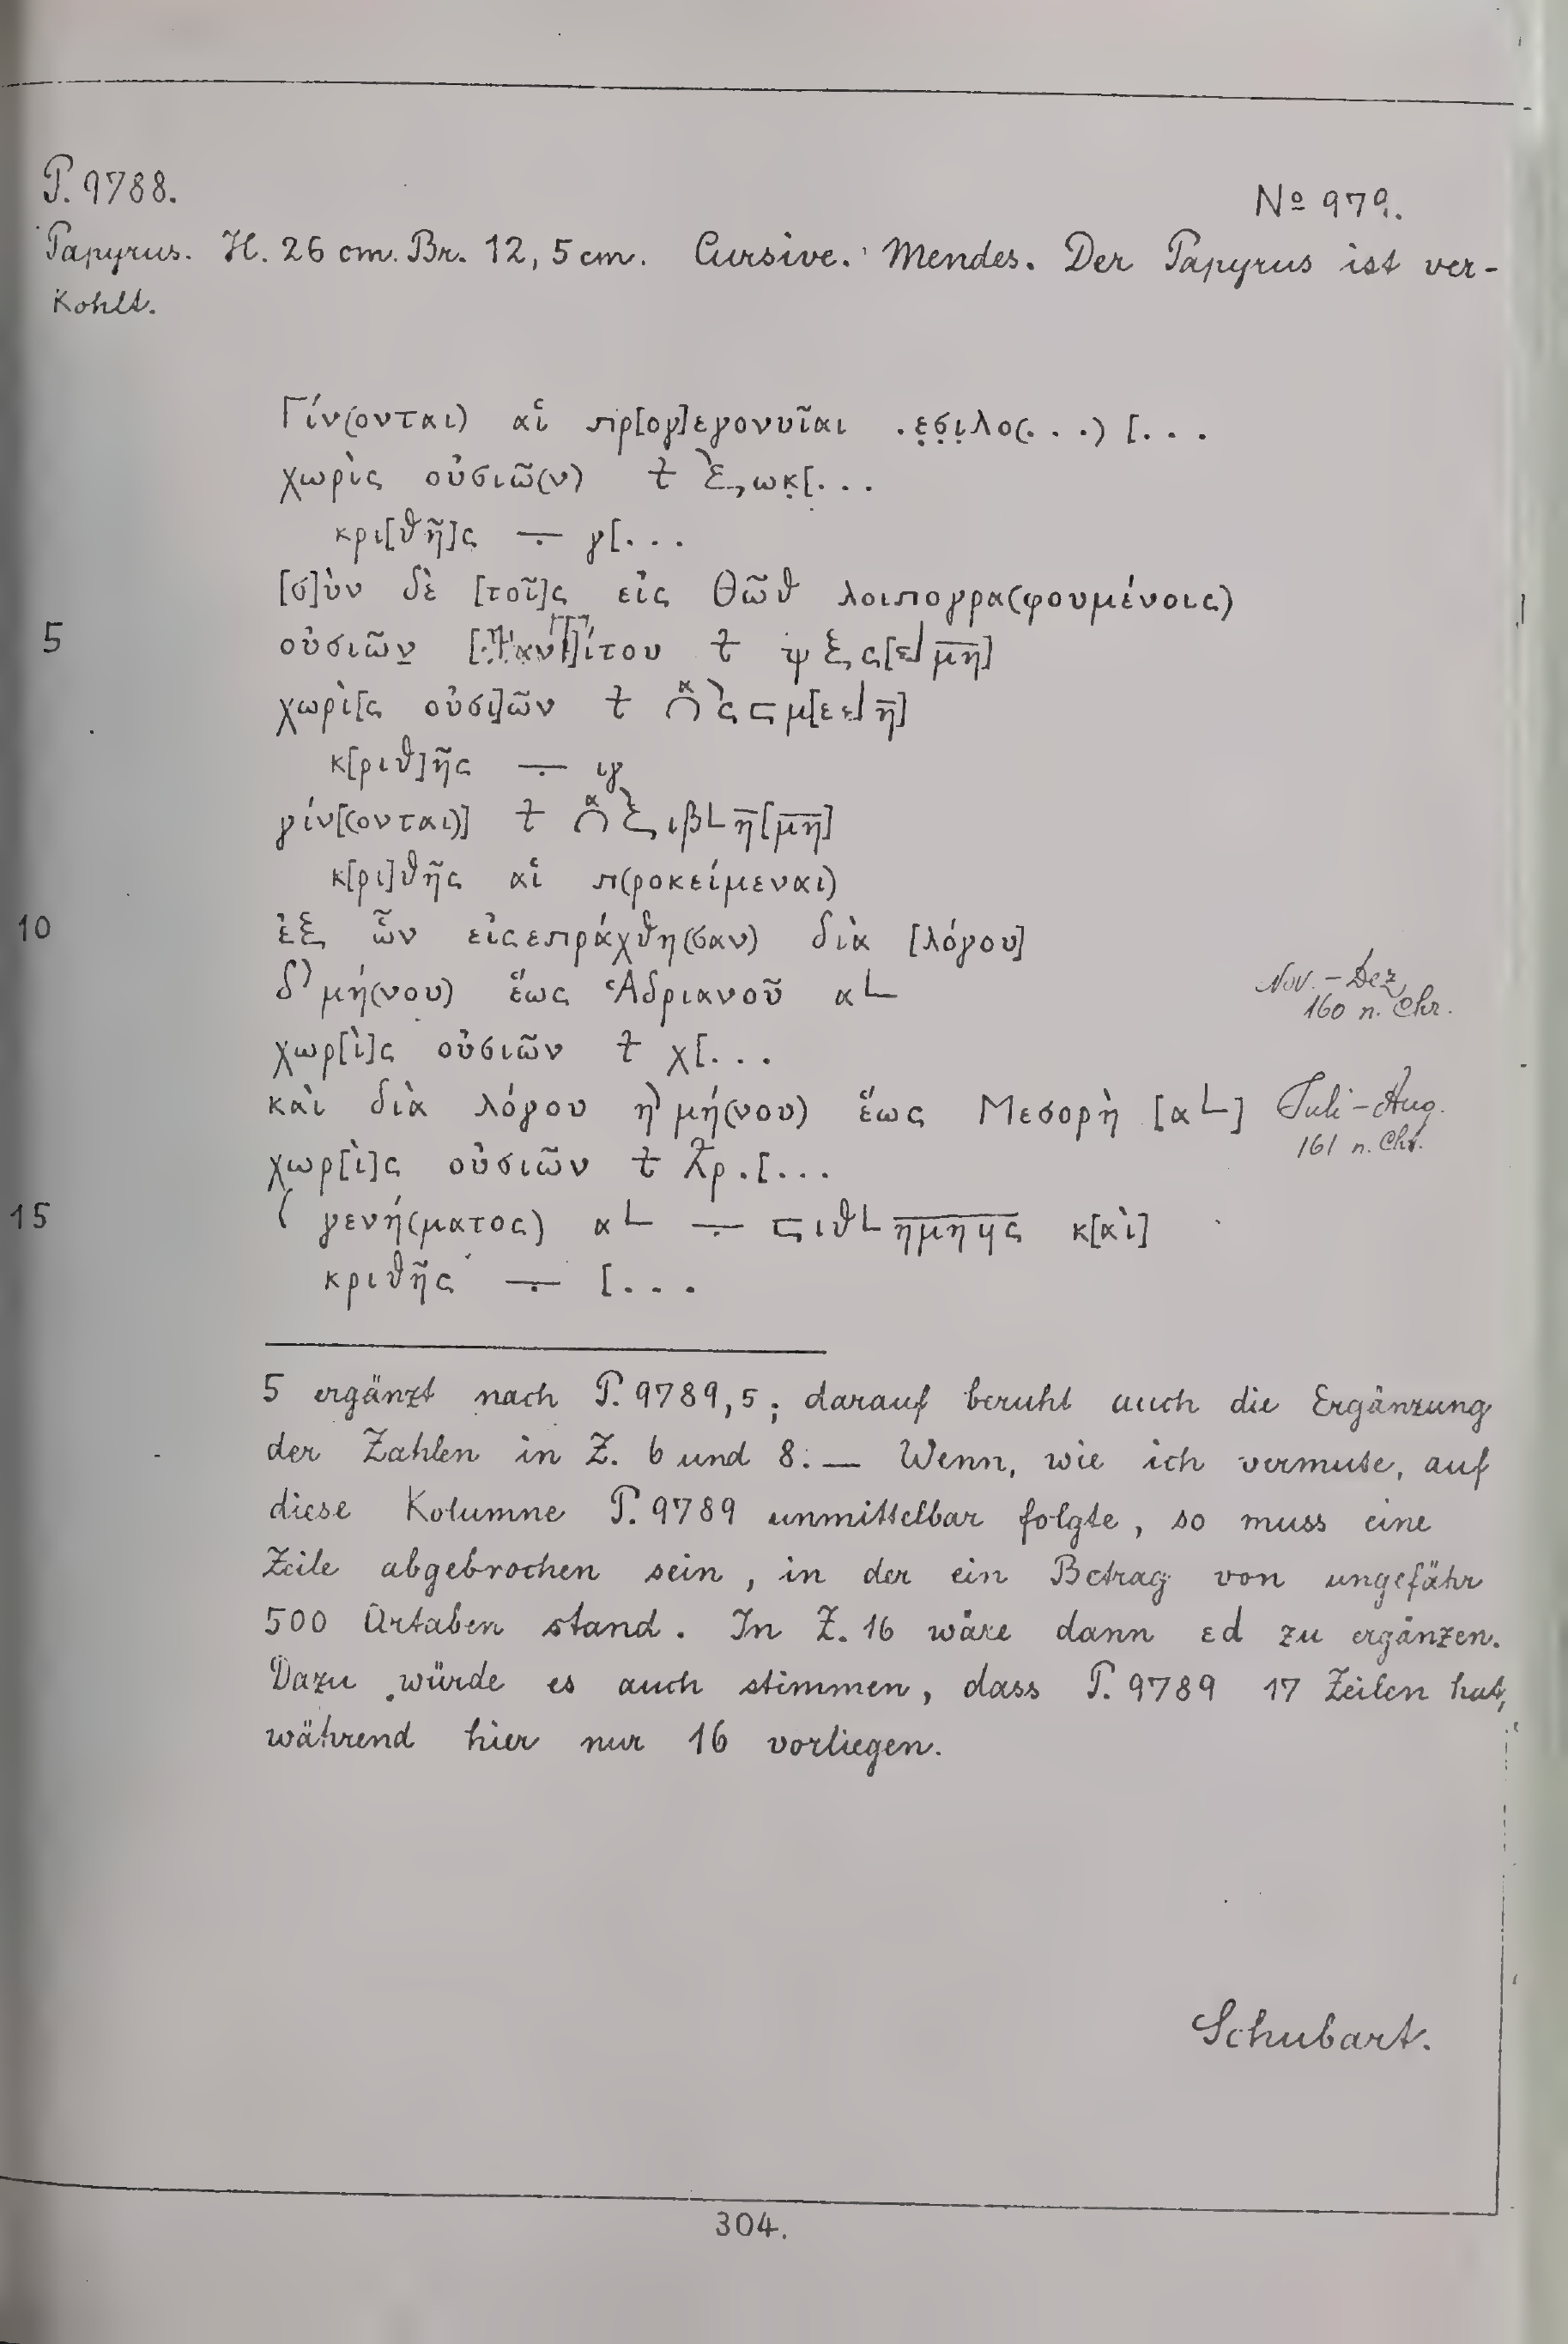 P. 9788.
No 979.
Papyrus. H. 26 cm. Br. 12,5 cm. Cursive. Mendes. Der Papyrus ist ver-
kohlt.
Γίν(ονται) αἱ πρ[ογ]εγονυῖαι .ε̣σ̣ι̣λο(...) [...
χωρὶς οὐσιῶ(ν) ωκ̣[...
κρι[θῆ]ς ÷ γ[...
[σ]ὺν δὲ [τοῖ]ς εἰς Θὼθ λοιπογρα(φουμένοις)
5 οὐσιῶν ίτου ψξς[εd μ̅η̅]
χωρὶ[ς οὐσι]ῶν μ[εεd η̅]
κ[ριθ]ῆς ÷ ιγ
γίν[(ονται)] ιβ∟η̅[μ̅η̅]
κ[ρι]θῆς αἱ π(ροκείμεναι)
10 ἐξ ὧν εἰσεπράχθη(σαν) διὰ [λόγου]
δ' μή(νου) ἕως Ἁδριανοῦ α∟ Nov.-Dez. 160 n. Chr.
χωρ[ὶ]ς οὐσιῶν χ[...
καὶ διὰ λόγου η' μή(νου) ἕως Μεσορὴ [α∟] Juli-Aug. 161 n. Chr.
χωρ[ὶ]ς οὐσιῶν .[...
15 ( γενή(ματος) α∟ ÷ ⊏ιθ∟η̅μ̅η̅ϥ̅ς̅ κ[αὶ]
κριθῆς ÷ [...
5 ergänzt nach P. 9789,5; darauf beruht auch die Ergänzung
der Zahlen in Z. 6 und 8. — Wenn, wie ich vermute, auf
diese Kolumne P. 9789 unmittelbar folgte, so muss eine
Zeile abgebrochen sein, in der ein Betrag von ungefähr
500 Artaben stand. In Z. 16 wäre dann εd zu ergänzen.
Dazu würde es auch stimmen, dass P. 9789 17 Zeilen hat,
während hier nur 16 vorliegen.
Schubart.
304.